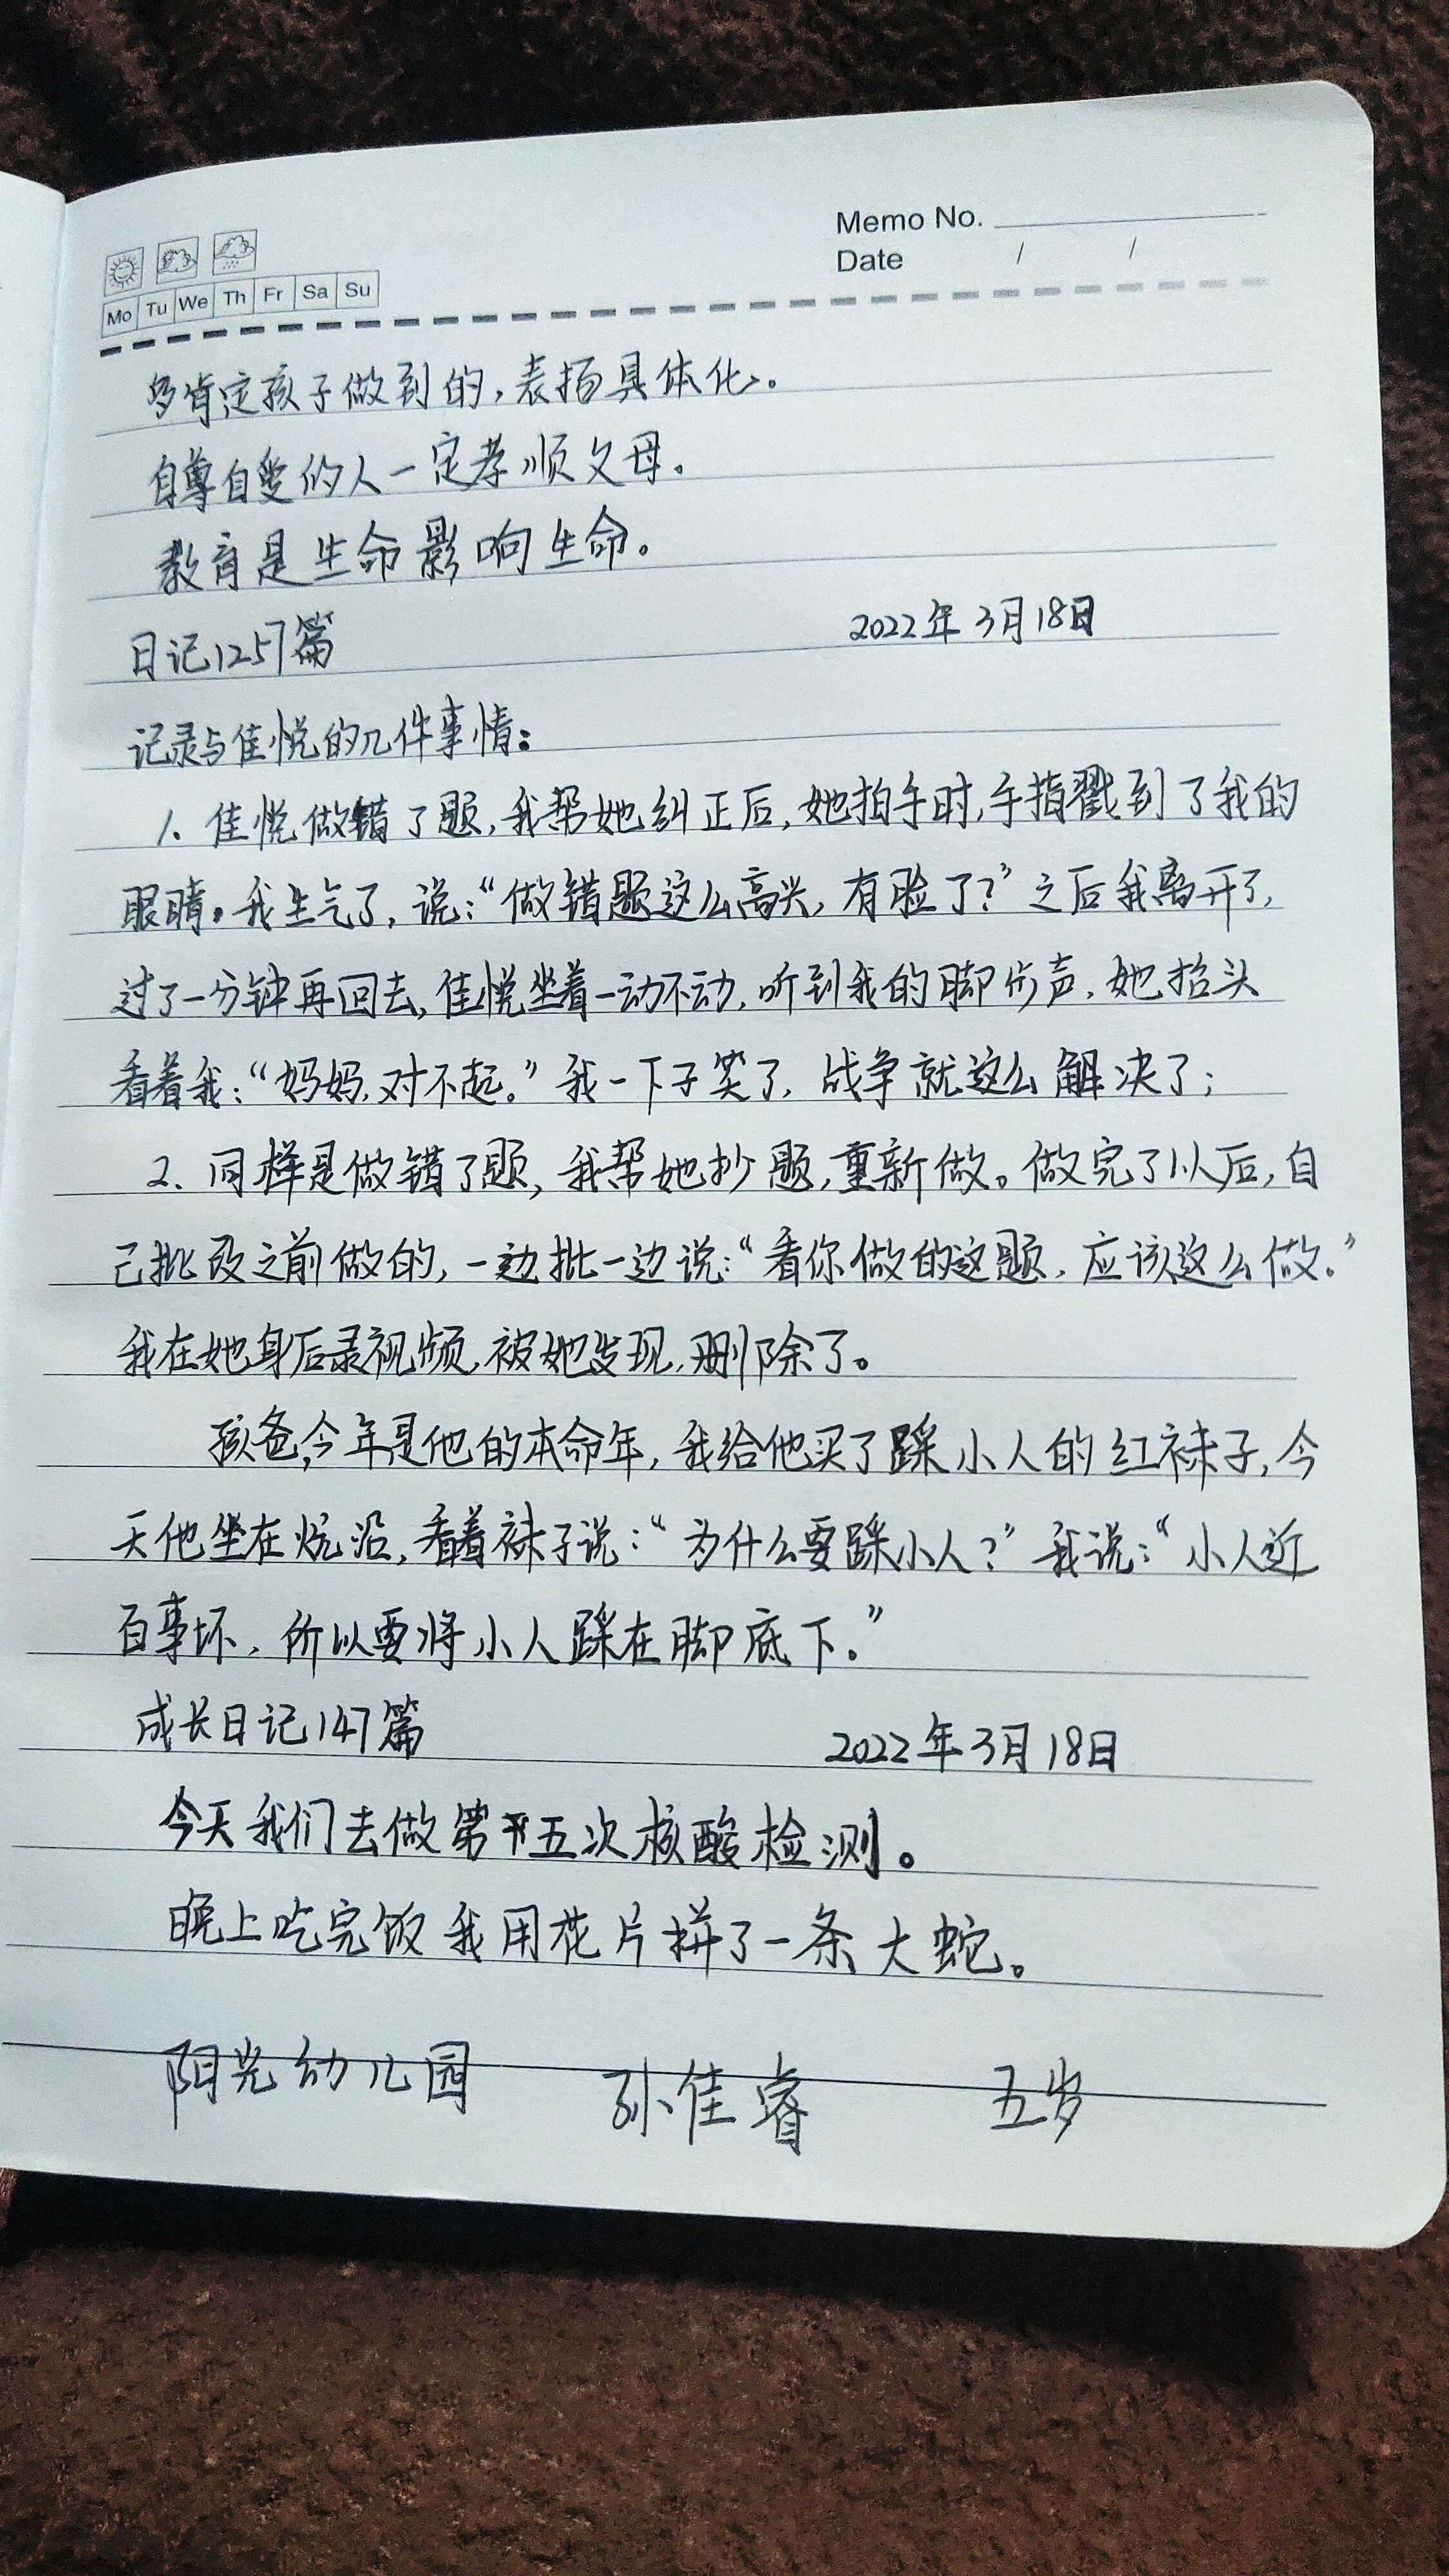 Memo No.
Date / /
Mo Tu We Th Fr Sa Su
多肯定孩子做到的,表扬具体化。
自尊自爱的人一定孝顺父母。
教育是生命影响生命。
日记1257篇 2022年3月18日
记录与佳悦的几件事情:
1、佳悦做错了题,我帮她纠正后,她拍手时,手指戳到了我的
眼睛。我生气了,说:“做错题这么高兴,有脸了?”之后我离开了,
过了一分钟再回去,佳悦坐着一动不动,听到我的脚步声,她抬头
看着我:“妈妈,对不起。”我一下子笑了,战争就这么解决了;
2、同样是做错了题,我帮她抄题,重新做。做完了以后,自
己批改之前做的,一边批一边说:“看你做的这题,应该这么做。”
我在她身后录视频,被她发现,删除了。
孩爸,今年是他的本命年,我给他买了踩小人的红袜子,今
天他坐在炕沿,看着袜子说:“为什么要踩小人?”我说:“小人近
百事坏,所以要将小人踩在脚底下。”
成长日记147篇 2022年3月18日
今天我们去做第五次核酸检测。
晚上吃完饭我用花片拼了一条大蛇。
阳光幼儿园 孙佳睿 五岁